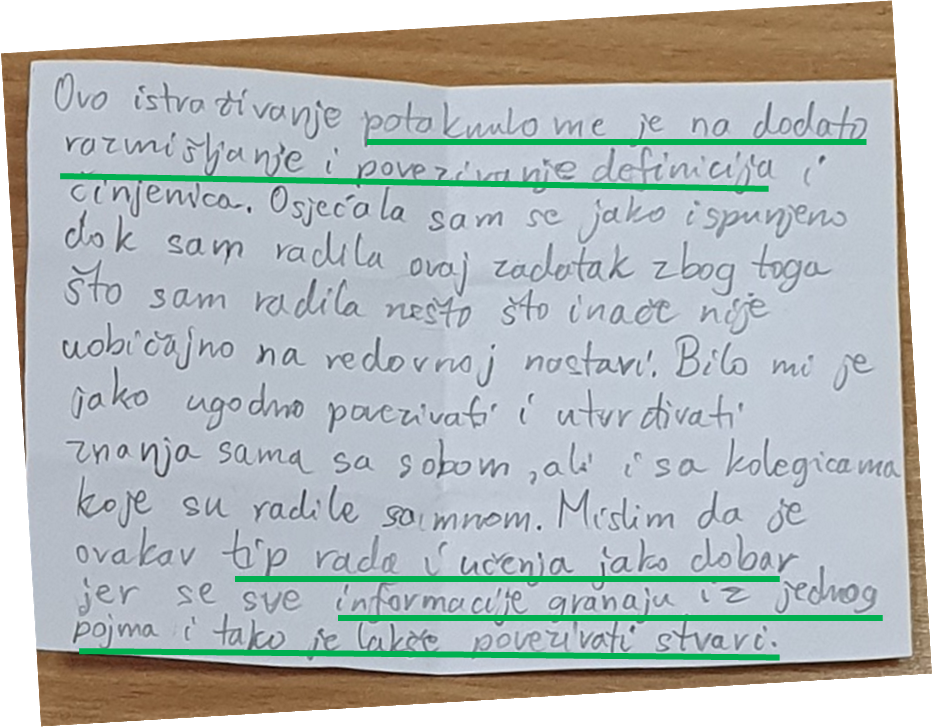 Ovo istraživanje potaknulo me je na dodato
razmišljanje i povezivanje definicija i
činjenica. Osjećala sam se jako ispunjeno
dok sam radila ovaj zadatak zbog toga
što sam radila nešto što inače nije
uobičajno na redovnoj nastavi. Bilo mi je
jako ugodno povezivati i utvrđivati
znanja sama sa sobom, ali i sa kolegicama
koje su radile sa mnom. Mislim da je
ovakav tip rada i učenja jako dobar
jer se sve informacije granaju iz jednog
pojma i tako je lakše povezivati stvari.